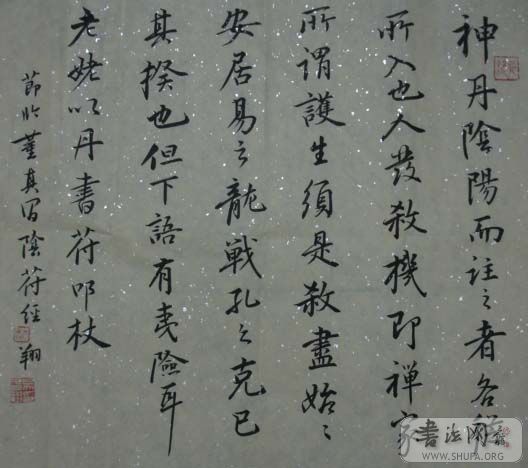 神丹陰陽而註之者各解
所入也人發殺機即禅家
所謂護生須是殺盡始〻
安居易之龍戰孔之克已
其揆也但下語有夷險耳
老姥以丹書苻叩杖
節临董其昌陰苻經 翔
书法网
WWW.SHUFA.ORG